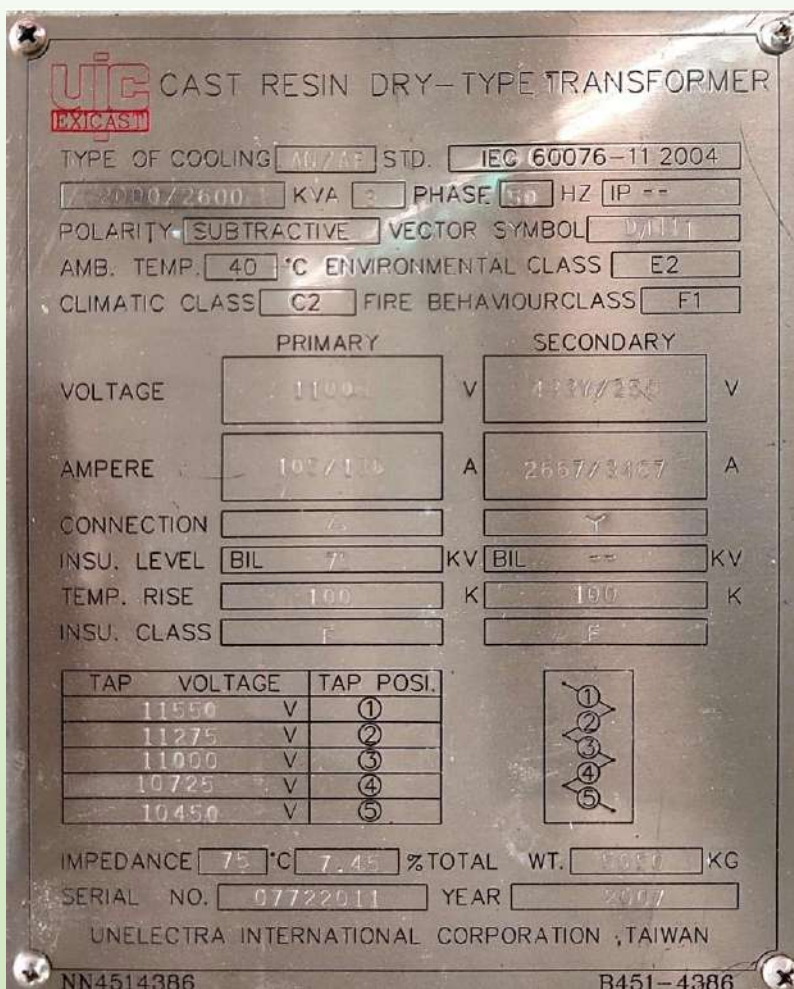 UIC CAST RESIN DRY-TYPE TRANSFORMER
EXICAST
TYPE OF COOLING AN/AF STD. IEC 60076-11 2004
2000/2600 KVA 3 PHASE 50 HZ IP --
POLARITY SUBTRACTIVE VECTOR SYMBOL
AMB. TEMP. 40 °C ENVIRONMENTAL CLASS E2
CLIMATIC CLASS C2 FIRE BEHAVIOURCLASS F1
PRIMARY SECONDARY
VOLTAGE 11000 V V
AMPERE A 2667/3467 A
CONNECTION △ Y
INSU. LEVEL BIL KV BIL -- KV
TEMP. RISE 100 K 100 K
INSU. CLASS F F
TAP VOLTAGE TAP POSI.
11550 V ① ①
11275 V ② ②
11000 V ③ ③
10725 V ④ ④
10450 V ⑤ ⑤
IMPEDANCE 75 °C 7.45 % TOTAL WT. KG
SERIAL NO. 07722011 YEAR 2007
UNELECTRA INTERNATIONAL CORPORATION , TAIWAN
NN4514386 B451-4386